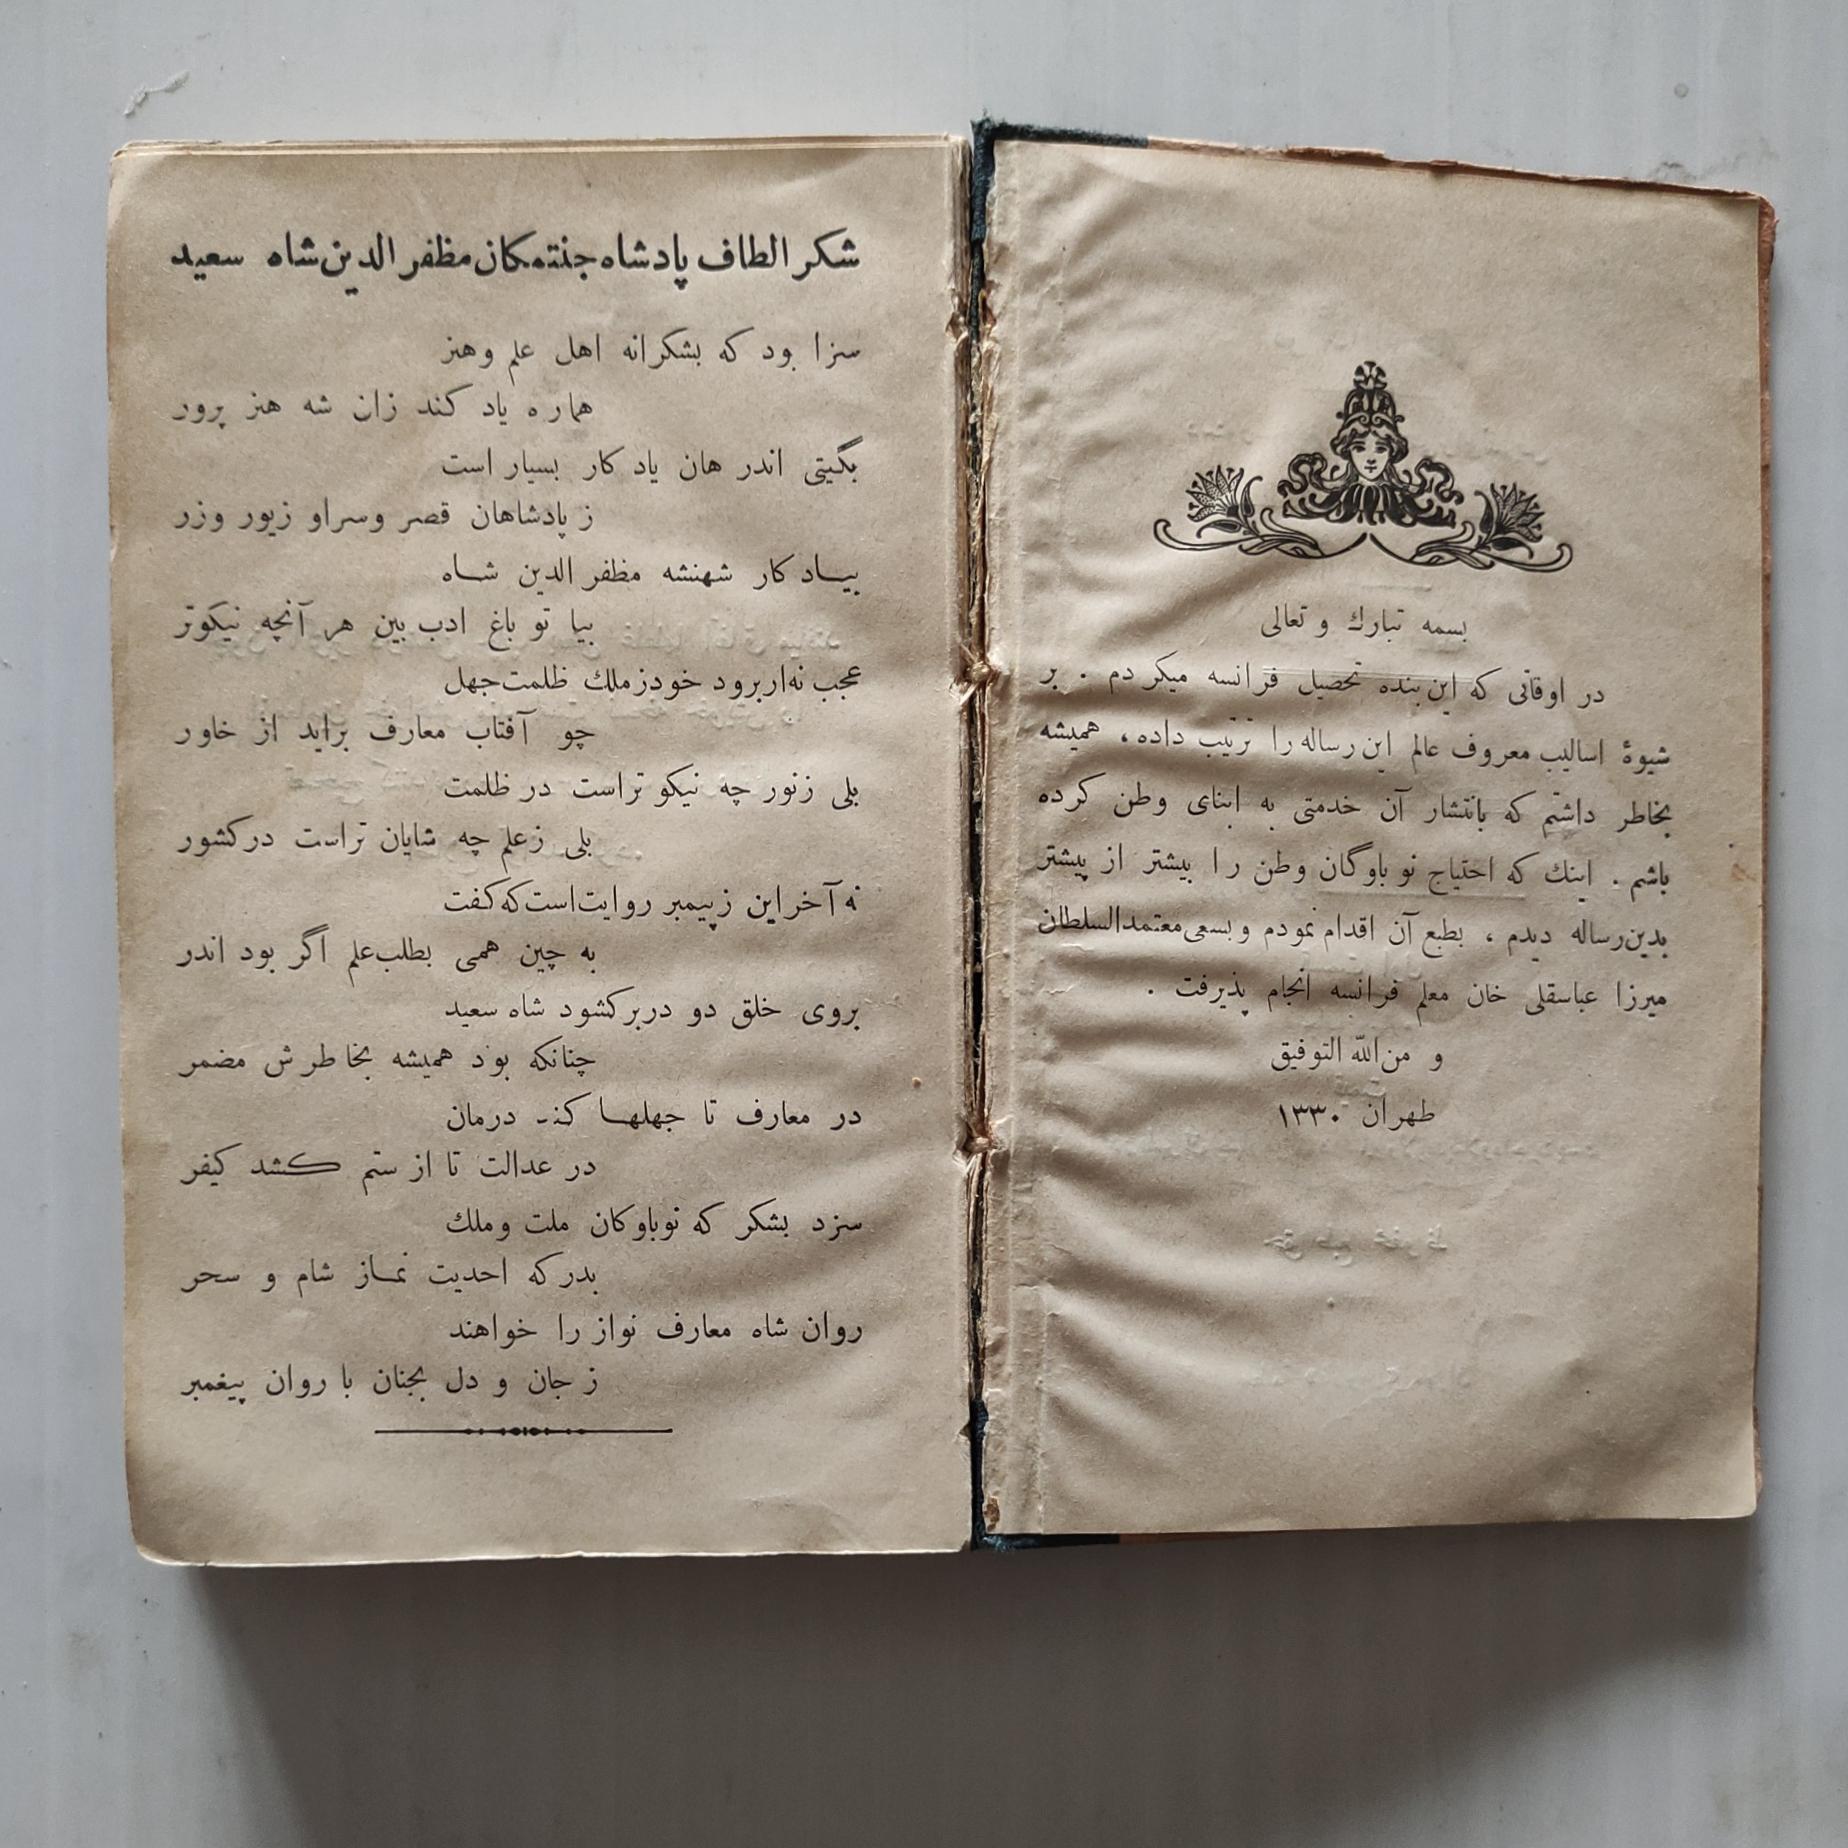 بسمه تبارك و تعالی
در اوقاتی که این بنده تحصیل فرانسه میکردم . بر
شیوهٔ اسالیب معروف عالم این رساله را ترتیب داده ، همیشه
بخاطر داشتم که بانتشار آن خدمتی به ابنای وطن کرده
باشم . اینك که احتیاج نوباوگان وطن را بیشتر از پیشتر
بدین رساله دیدم ، بطبع آن اقدام نمودم و بسعی معتمدالسلطان
میرزا عباسقلی خان معلم فرانسه انجام پذیرفت .
و من الله التوفیق
طهران ۱۳۳۰
شکر الطاف پادشاه جنتمکان مظفر الدین شاه سعید
سزا بود که بشکرانه اهل علم وهنر
هماره یاد کند زان شه هنر پرور
بگیتی اندر هان یاد کار بسیار است
ز پادشاهان قصر وسراو زیور وزر
بیـاد کار شهنشه مظفر الدین شـاه
بیا تو باغ ادب بین هر آنچه نیکوتر
عجب نه ار برود خود ز ملك ظلمت جهل
چو آفتاب معارف براید از خاور
بلی زنور چه نیکو تر است در ظلمت
بلی زعلم چه شایان تر است در کشور
نه آخر این ز پیمبر روایت است که کفت
به چین همی بطلب علم اگر بود اندر
بروی خلق دو در بر کشود شاه سعید
چنانکه بود همیشه بخاطرش مضمر
در معارف تا جهلهـا کند درمان
در عدالت تا از ستم کشد کیفر
سزد بشکر که نوباوکان ملت وملك
بدر که احدیت نمـاز شام و سحر
روان شاه معارف نواز را خواهند
ز جان و دل بجنان با روان پیغمبر